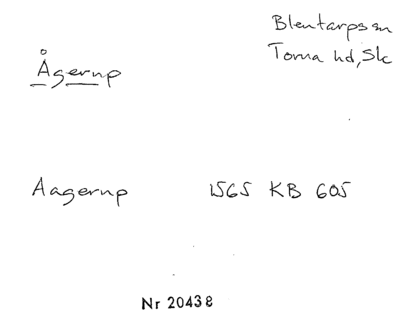 Blentarps sn
Torna hd, Sk
Ågerup
Aagerup 1565 KB 605
Nr 20438